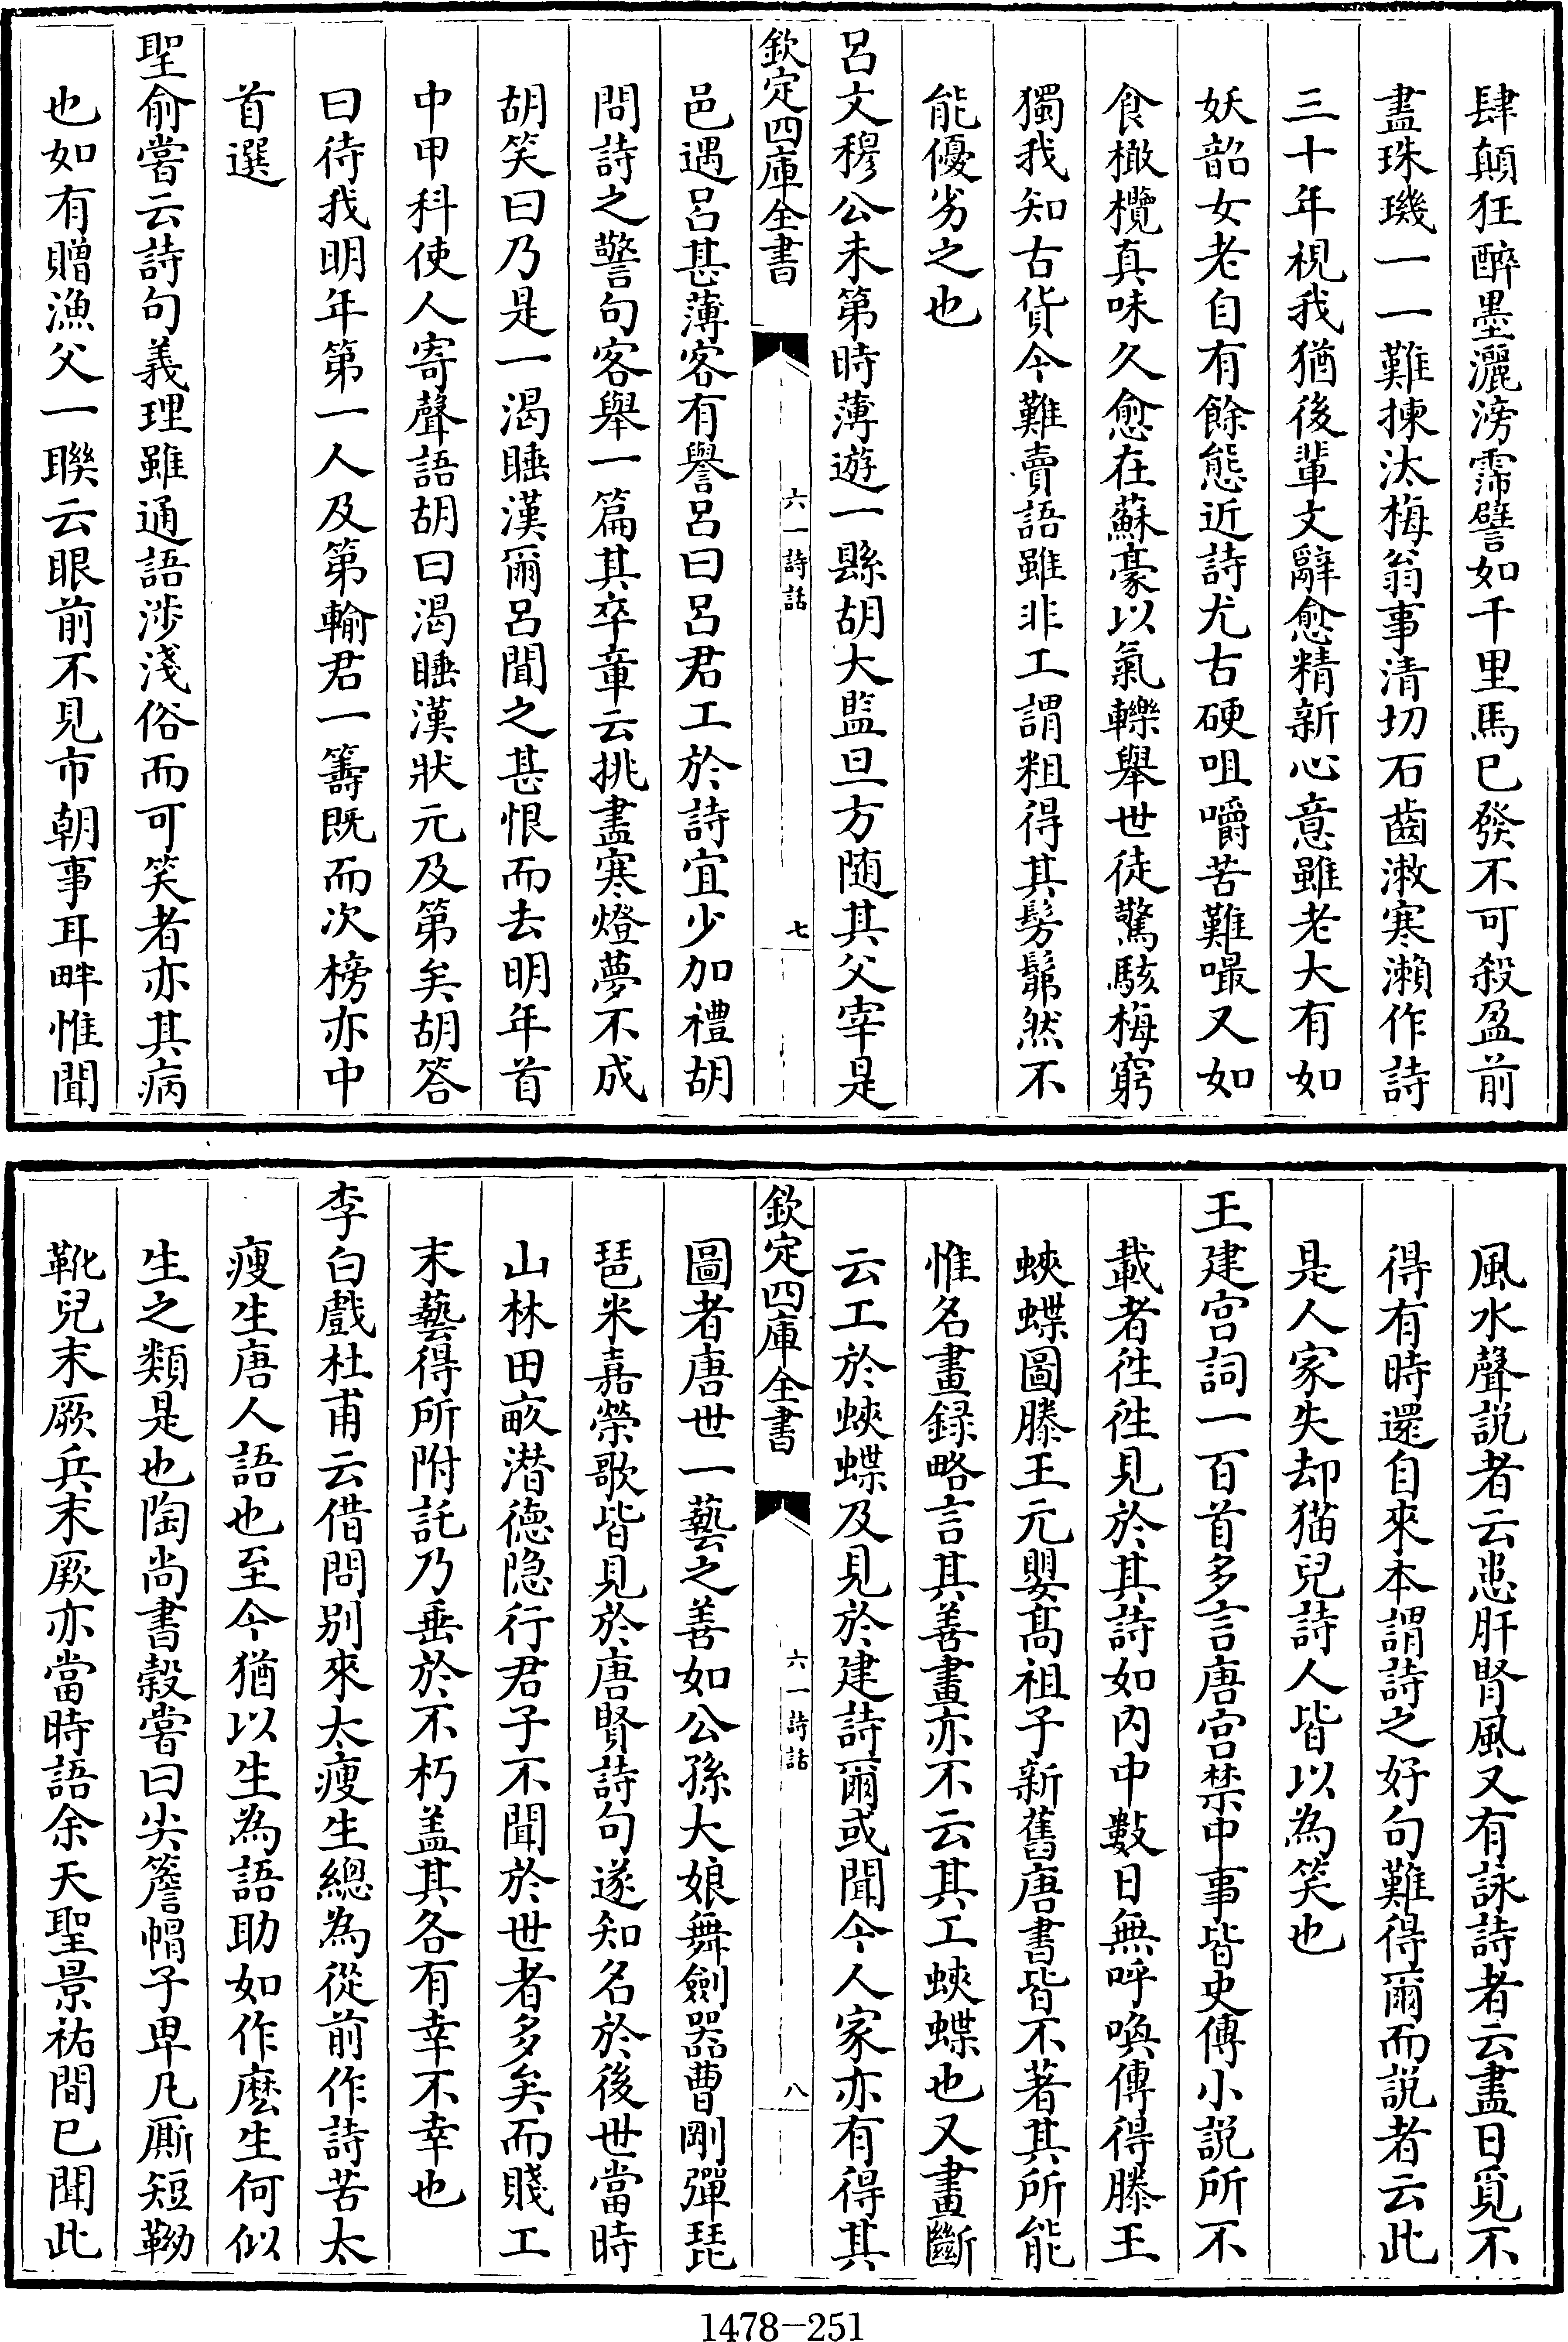 肆顛狂醉墨灑滂霈譬如千里馬已發不可殺盈前
盡珠璣一一難揀汰梅翁事清切石齒漱寒瀨作詩
三十年視我猶後輩文辭愈精新心意雖老大有如
妖韶女老自有餘態近詩尤古硬咀嚼苦難嘬又如
食橄欖真味久愈在蘇豪以氣轢舉世徒驚駭梅窮
獨我知古貨今難賣語雖非工謂粗得其髣髴然不
能優劣之也
呂文穆公未第時薄遊一縣胡大監旦方随其父宰是
欽定四庫全書
六一詩話
七
邑遇呂甚薄客有譽呂曰呂君工於詩宜少加禮胡
問詩之警句客舉一篇其卒章云挑盡寒燈夢不成
胡笑曰乃是一渴睡漢爾呂聞之甚恨而去明年首
中甲科使人寄聲語胡曰渴睡漢狀元及第矣胡答
曰待我明年第一人及第輸君一籌既而次榜亦中
首選
聖俞嘗云詩句義理雖通語涉淺俗而可笑者亦其病
也如有贈漁父一聯云眼前不見市朝事耳畔惟聞
風水聲説者云患肝腎風又有詠詩者云盡日覓不
得有時還自來本謂詩之好句難得爾而説者云此
是人家失却猫兒詩人皆以為笑也
王建宫詞一百首多言唐宫禁中事皆史傳小説所不
載者徃徃見於其詩如内中數日無呼喚傳得滕王
蛺蝶圖滕王元嬰髙祖子新舊唐書皆不著其所能
惟名畫録略言其善畫亦不云其工蛺蝶也又畫斷
云工於蛺蝶及見於建詩爾或聞今人家亦有得其
欽定四庫全書
六一詩話
八
圖者唐世一藝之善如公孫大娘舞劍器曹剛彈琵
琶米嘉榮歌皆見於唐賢詩句遂知名於後世當時
山林田畝潜德隠行君子不聞於世者多矣而賤工
末藝得所附託乃垂於不朽盖其各有幸不幸也
李白戲杜甫云借問別來太瘦生總為從前作詩苦太
瘦生唐人語也至今猶以生為語助如作麽生何似
生之類是也陶尚書穀嘗曰尖簷帽子卑凡厮短靿
靴兒末厥兵末厥亦當時語余天聖景祐間已聞此
1478-251